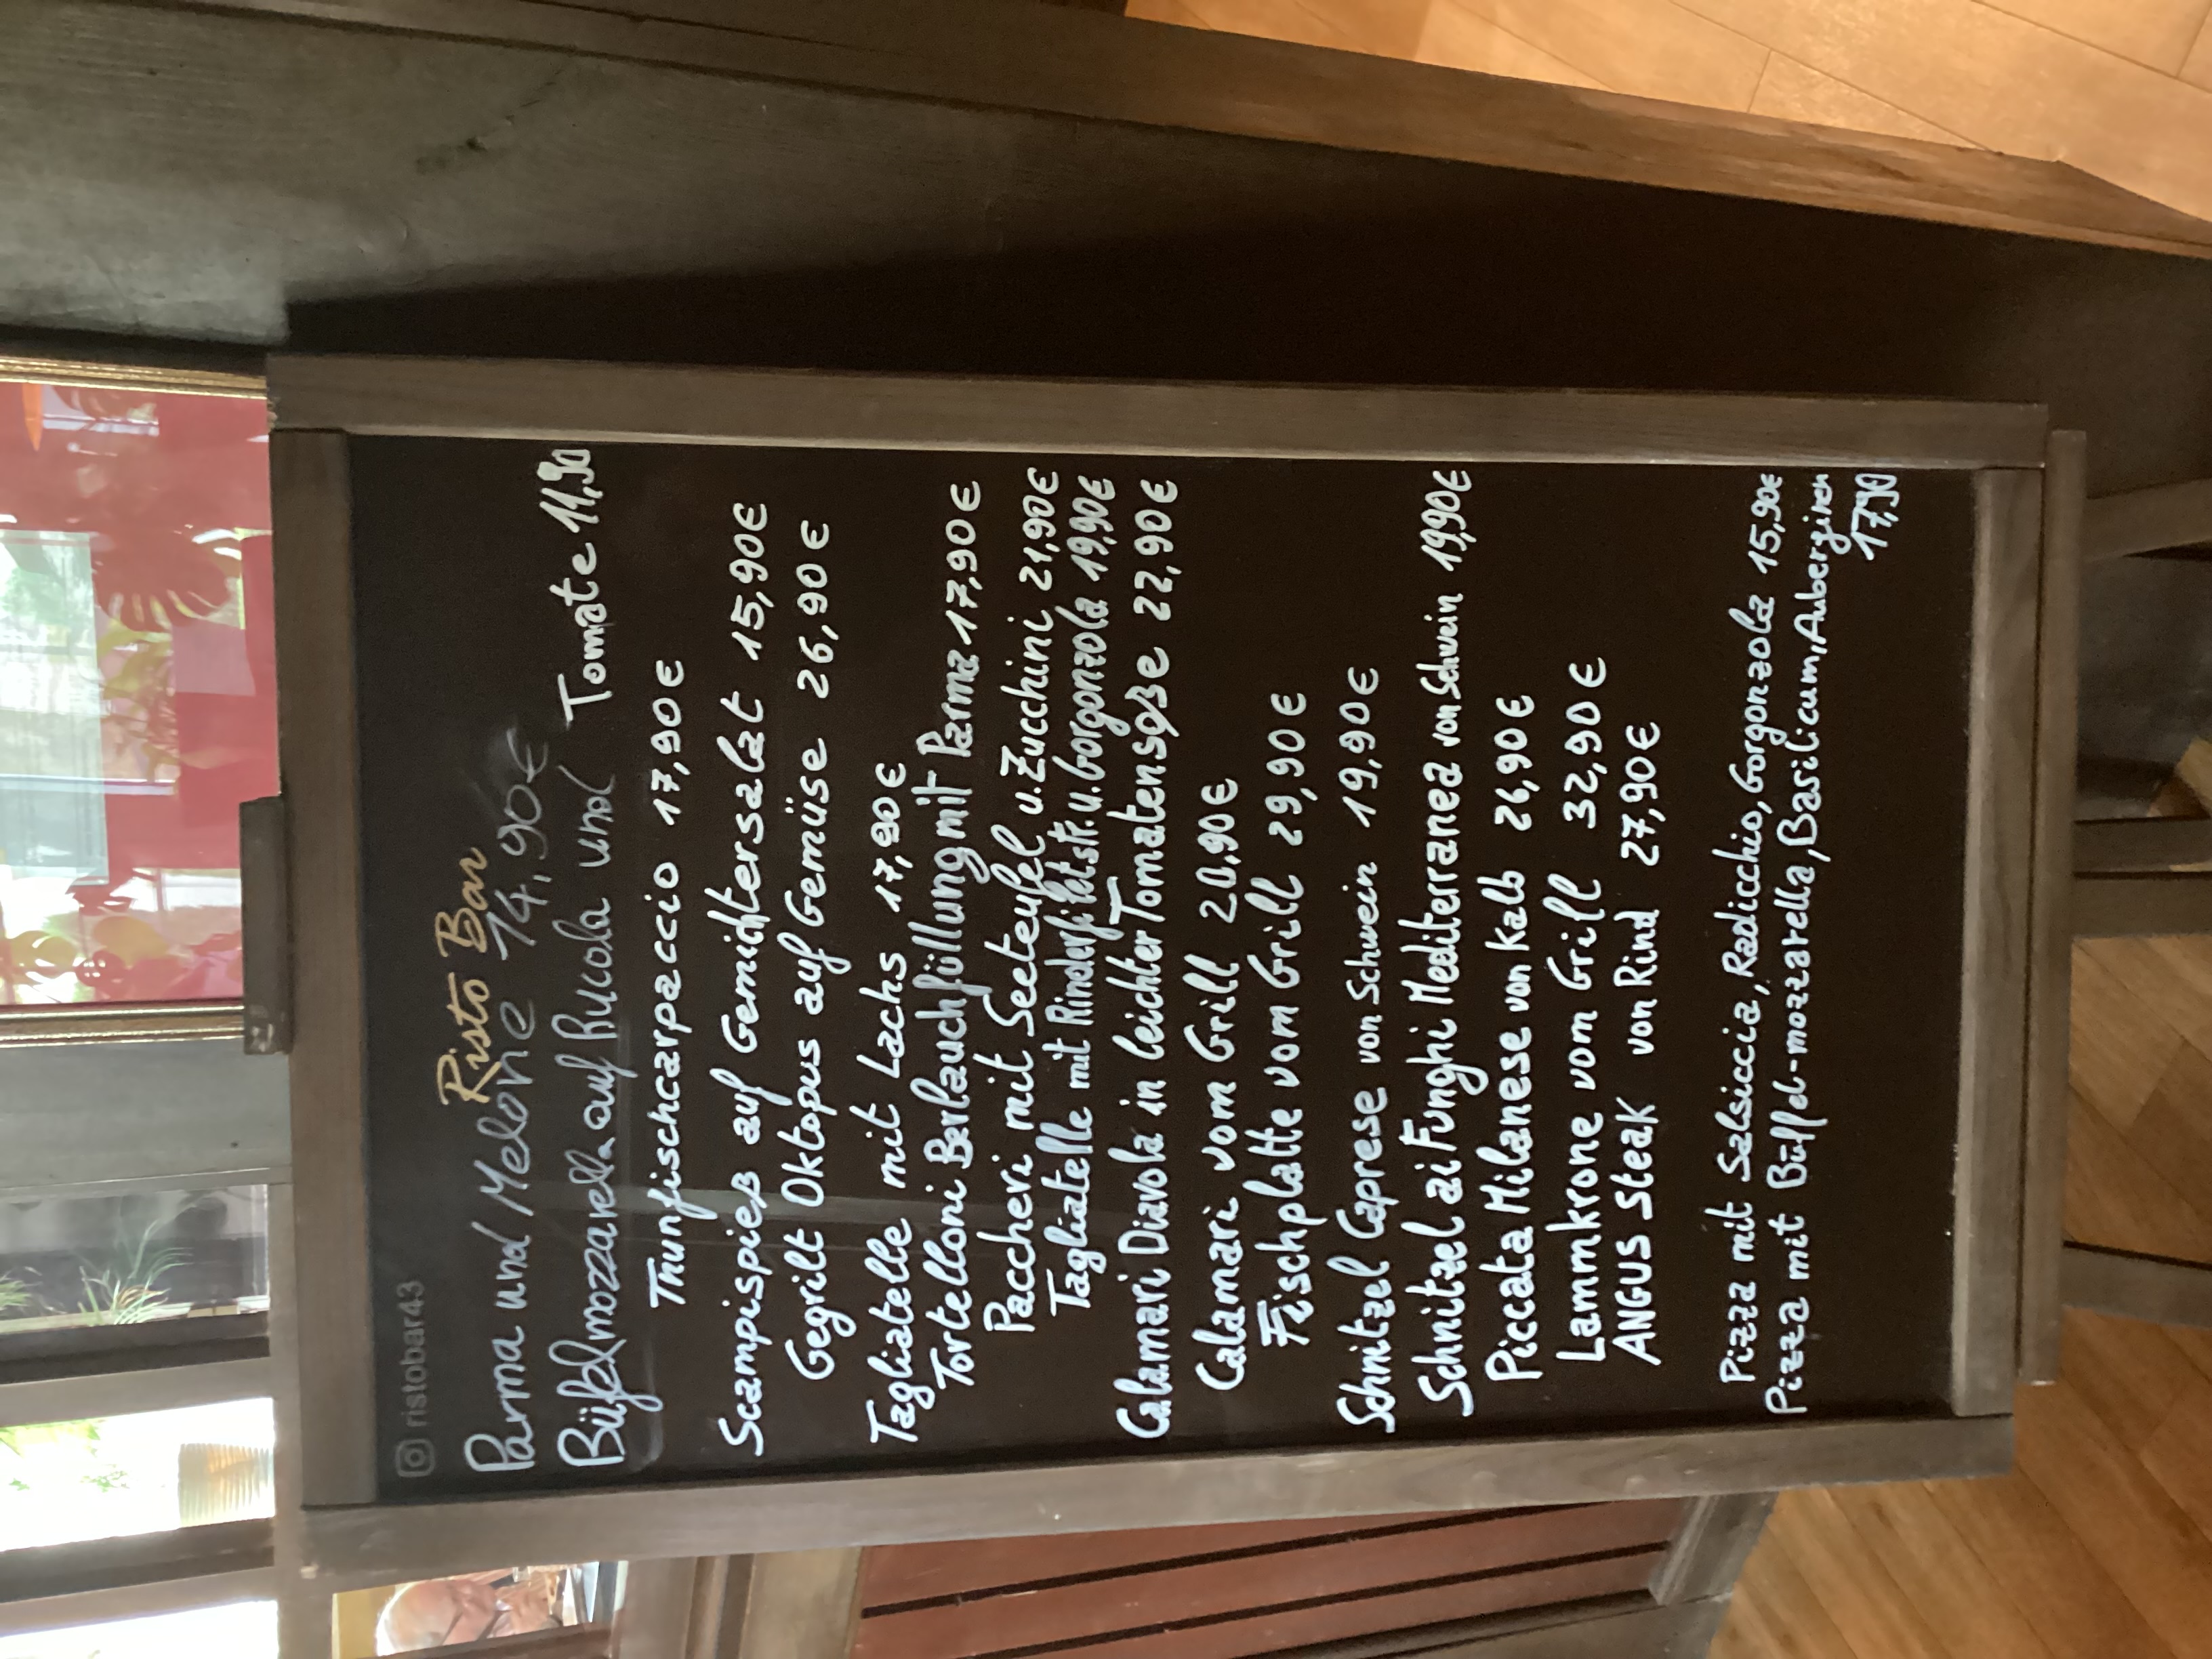 ristobar43
Risto Bar
Parma und Melone 14,90€
Büffelmozzarella auf Rucola und Tomate 11,90
Thunfischcarpaccio 17,90€
Scampispieß auf Gemichtersalat 15,90€
Gegrilt Oktopus auf Gemüse 26,90€
Tagliatelle mit Lachs 17,90€
Tortelloni Bärlauchfüllung mit Parma 17,90€
Paccheri mit Seeteufel u. Zucchini 21,90€
Tagliatelle mit Rinderfiletstr. u. Gorgonzola 19,90€
Calamari Diavola in leichter Tomatensoße 22,90€
Calamari vom Grill 20,90€
Fischplatte vom Grill 29,90€
Schnitzel Caprese von Schwein 19,90€
Schnitzel ai Funghi Mediterranea von Schwein 19,90€
Piccata Milanese von Kalb 26,90€
Lammkrone vom Grill 32,90€
ANGUS Steak von Rind 27,90€
Pizza mit Salsiccia, Radicchio, Gorgonzola 15,90€
Pizza mit Büffel-mozzarella, Basilicum, Auberginen
17,90